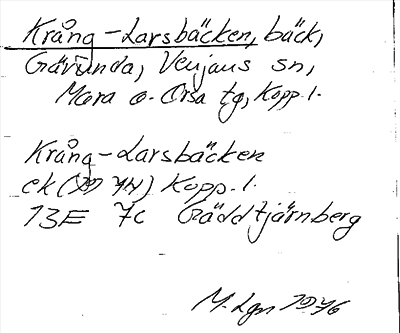 Krång-Larsbäcken, bäck,
Gävunda, Venjans sn,
Mora o. Orsa tg, Kopp. l.
Krång-Larsbäcken
ek ( ) Kopp. l.
13E 7c Gäddtjärnberg
M. Lgn 1976